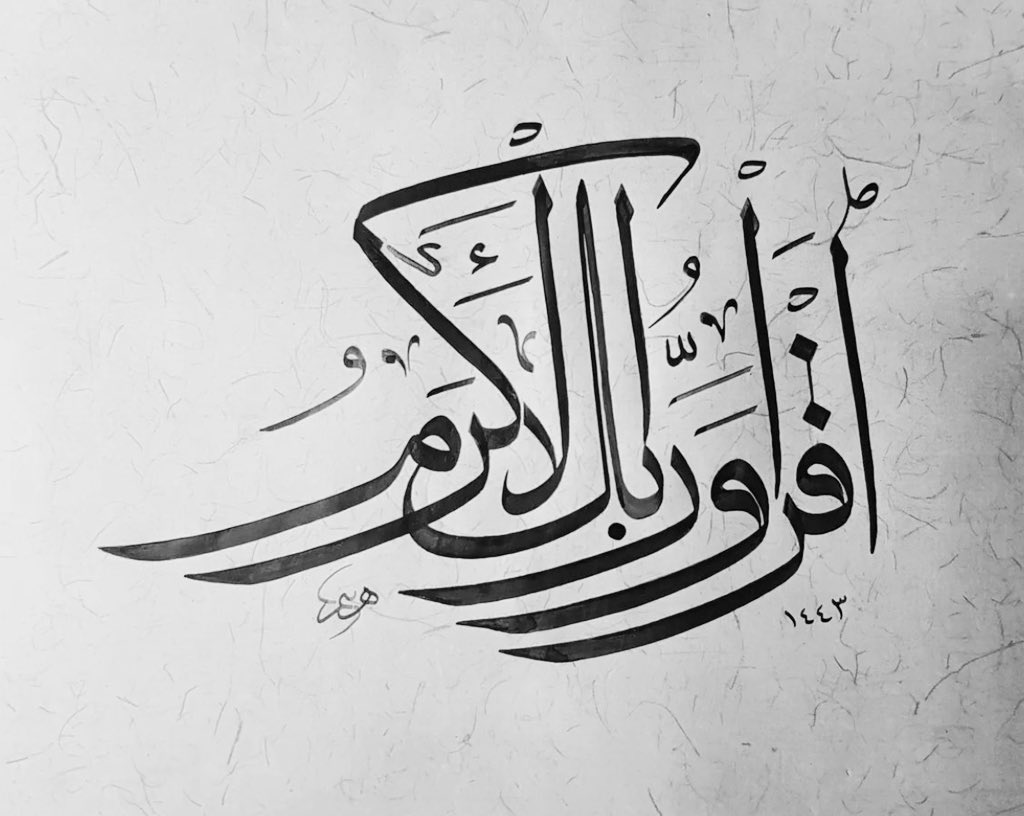 اقْرَأْ وَرَبُّكَ الْأَكْرَمُ
١٤٤٣